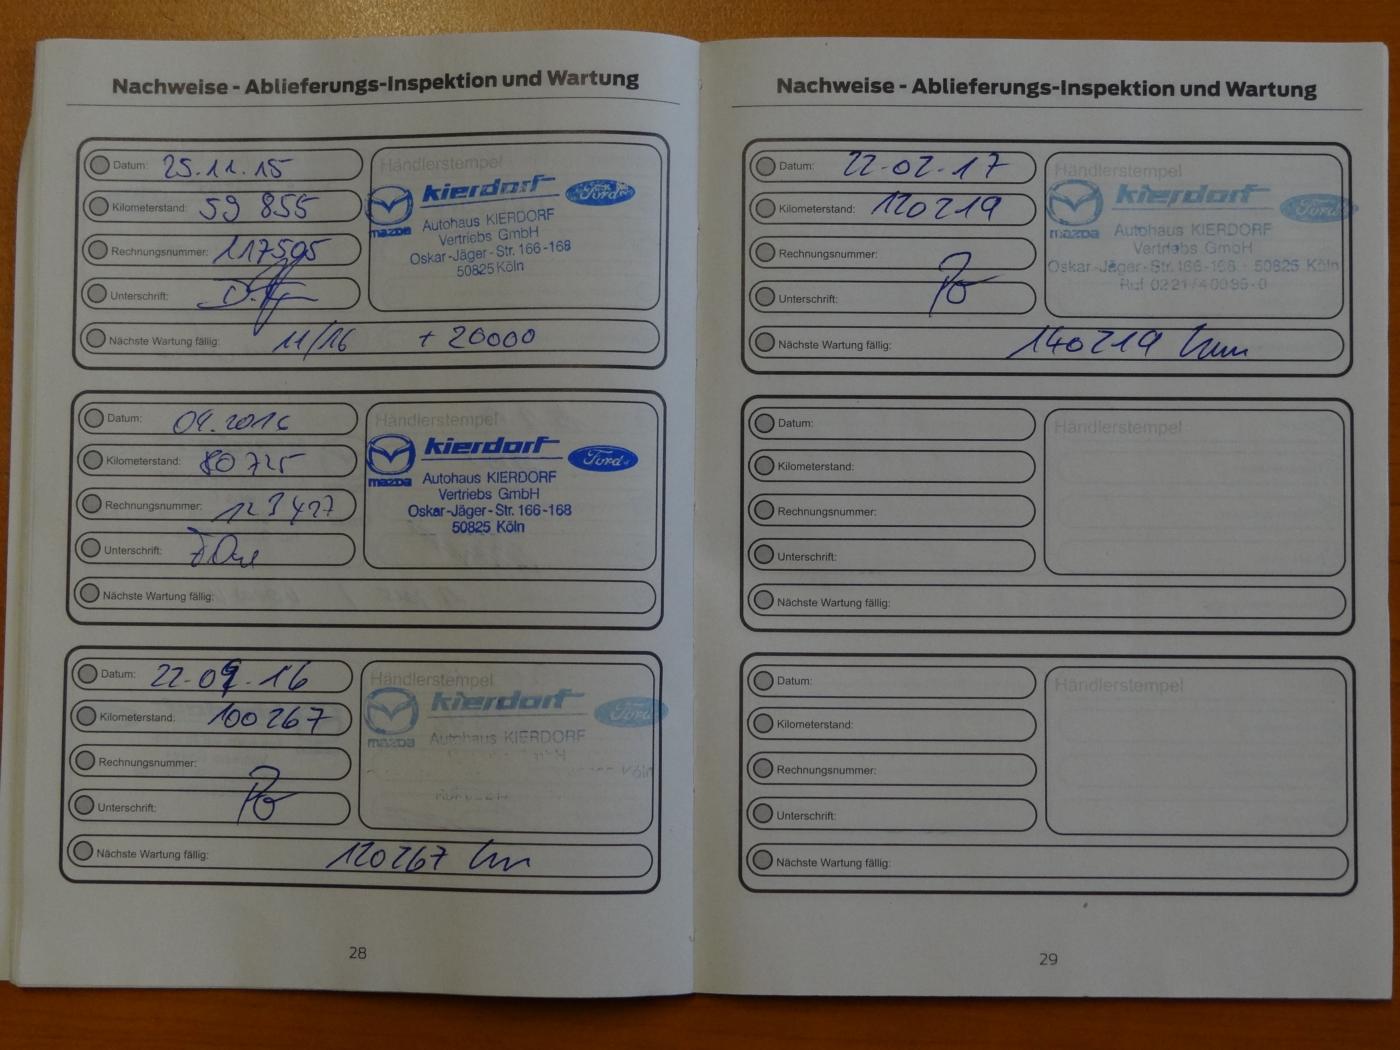 Nachweise - Ablieferungs-Inspektion und Wartung
Datum: 25.11.15
Kilometerstand: 59 855
Rechnungsnummer: 117595
Unterschrift:
Nächste Wartung fällig: 11/16 + 20000
Händlerstempel
kierdorf Ford
mazda
Autohaus KIERDORF
Vertriebs GmbH
Oskar-Jäger-Str. 166-168
50825 Köln
Datum: 04.2016
Kilometerstand: 80725
Rechnungsnummer: 123427
Unterschrift:
Nächste Wartung fällig:
Händlerstempel
kierdorf Ford
mazda
Autohaus KIERDORF
Vertriebs GmbH
Oskar-Jäger-Str. 166-168
50825 Köln
Datum: 22.09.16
Kilometerstand: 100267
Rechnungsnummer:
Unterschrift:
Nächste Wartung fällig: 120267 km
Händlerstempel
kierdorf Ford
mazda
Autohaus KIERDORF
Köln
28
Nachweise - Ablieferungs-Inspektion und Wartung
Datum: 22-02-17
Kilometerstand: 120219
Rechnungsnummer:
Unterschrift:
Nächste Wartung fällig: 140219 km
Händlerstempel
kierdorf Ford
mazda
Autohaus KIERDORF
Vertriebs GmbH
Oskar-Jäger-Str. 166-168 - 50825 Köln
Ruf 0221/40085-0
Datum:
Kilometerstand:
Rechnungsnummer:
Unterschrift:
Nächste Wartung fällig:
Händlerstempel
Datum:
Kilometerstand:
Rechnungsnummer:
Unterschrift:
Nächste Wartung fällig:
Händlerstempel
29